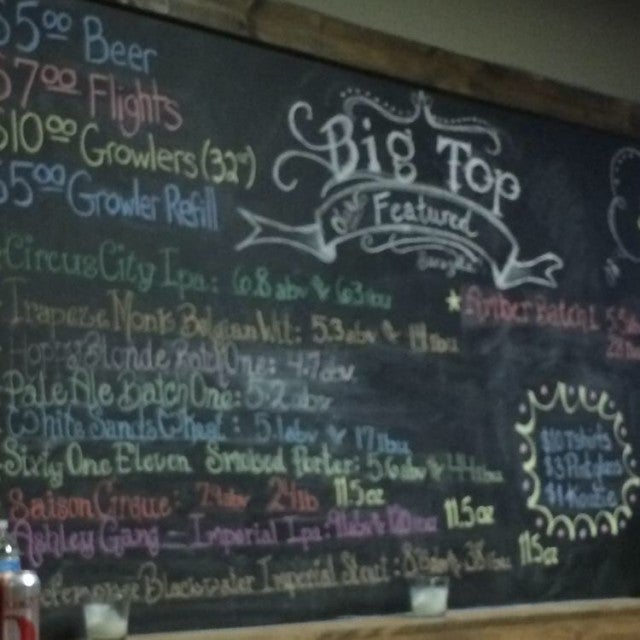 $5.00 Beer
$7.00 Flights
$10.00 Growlers (32")
$5.00 Growler Refill
Big Top
Featured
Circus City Ipa: 6.8 abv & 63 ibu
Trapeze Monk Belgian Wit: 5.3 abv & 19 ibu
Blonde Batch One: 4.7 abv
Pale Ale Batch One: 5.2 abv
White Sands Wheat: 5.1 abv & 17 ibu
Sixty One Eleven Smoked Porter: 5.6 abv & 44 ibu
Saison Cirque: 7.4 abv 24 ib 11.5 oz
Ashley Gang - Imperial Ipa: 11.5 oz
Blackwater Imperial Stout: 11.5 oz
Amber Batch 1
$10 Tshirts
$3 Pint glass
$1 Koozie